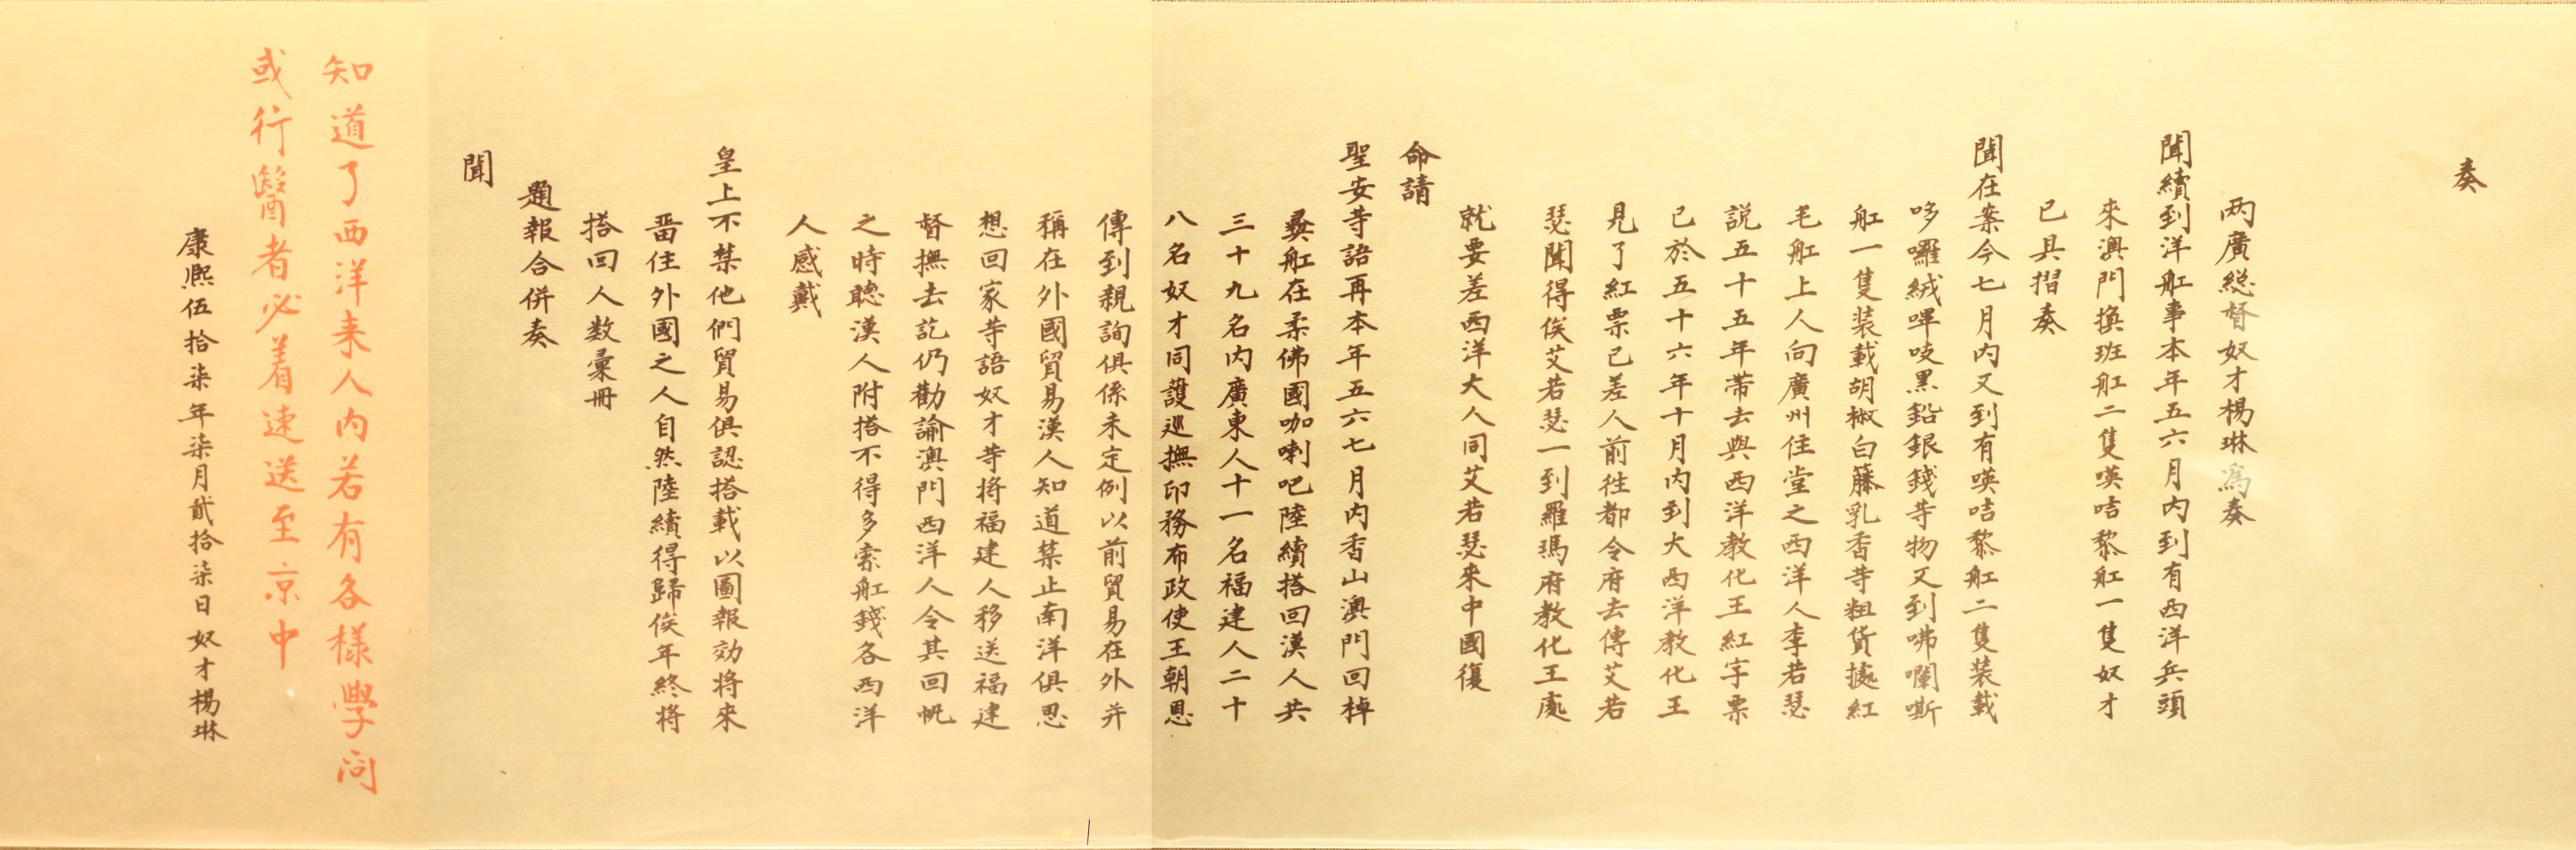 奏
两廣総督奴才楊琳為奏
聞續到洋舡事本年五六月内到有西洋兵頭
來澳門換班舡二隻暎咭黎舡一隻奴才
已具摺奏
聞在案今七月内又到有暎咭黎舡二隻装載
哆囉絨嗶吱黑鉛銀錢等物又到咈囒嘶
舡一隻装載胡椒白藤乳香等粗貨據紅
毛舡上人向廣州住堂之西洋人李若瑟
説五十五年帶去與西洋教化王紅字票
已於五十六年十月内到大西洋教化王
見了紅票已差人前徃都令府去傳艾若
瑟聞得俟艾若瑟一到羅瑪府教化王處
就要差西洋大人同艾若瑟來中國復
命請
聖安等語再本年五六七月内香山澳門回棹
彛舡在柔佛國咖喇吧陸續搭回漢人共
三十九名内廣東人十一名福建人二十
八名奴才同護巡撫印務布政使王朝恩
傳到親詢俱係未定例以前貿易在外并
稱在外國貿易漢人知道禁止南洋俱思
想回家等語奴才等将福建人移送福建
督撫去訖仍勸諭澳門西洋人令其回帆
之時聽漢人附搭不得多索舡錢各西洋
人感戴
皇上不禁他們貿易俱認搭載以圖報効将來
畱住外國之人自然陸續得歸俟年終将
搭回人数彙冊
題報合併奏
聞
知道了西洋来人内若有各樣學问
或行醫者必着速送至京中
康熈伍拾柒年柒月貳拾柒日奴才楊琳